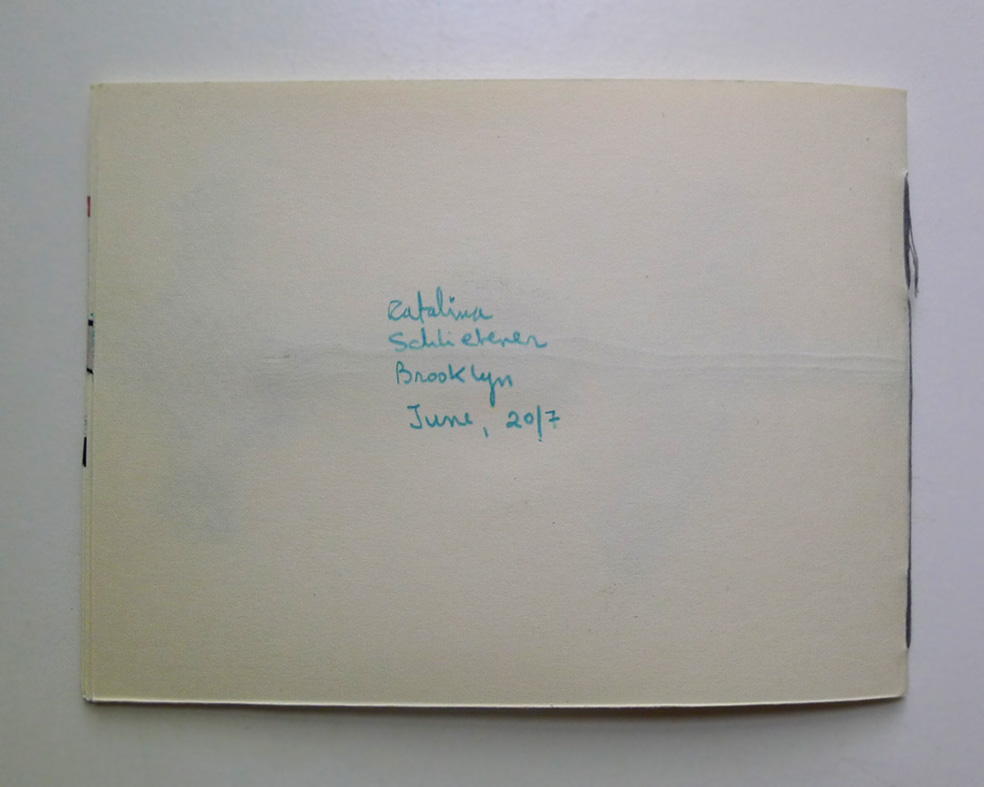 Catalina
Schliebener
Brooklyn
June, 2017